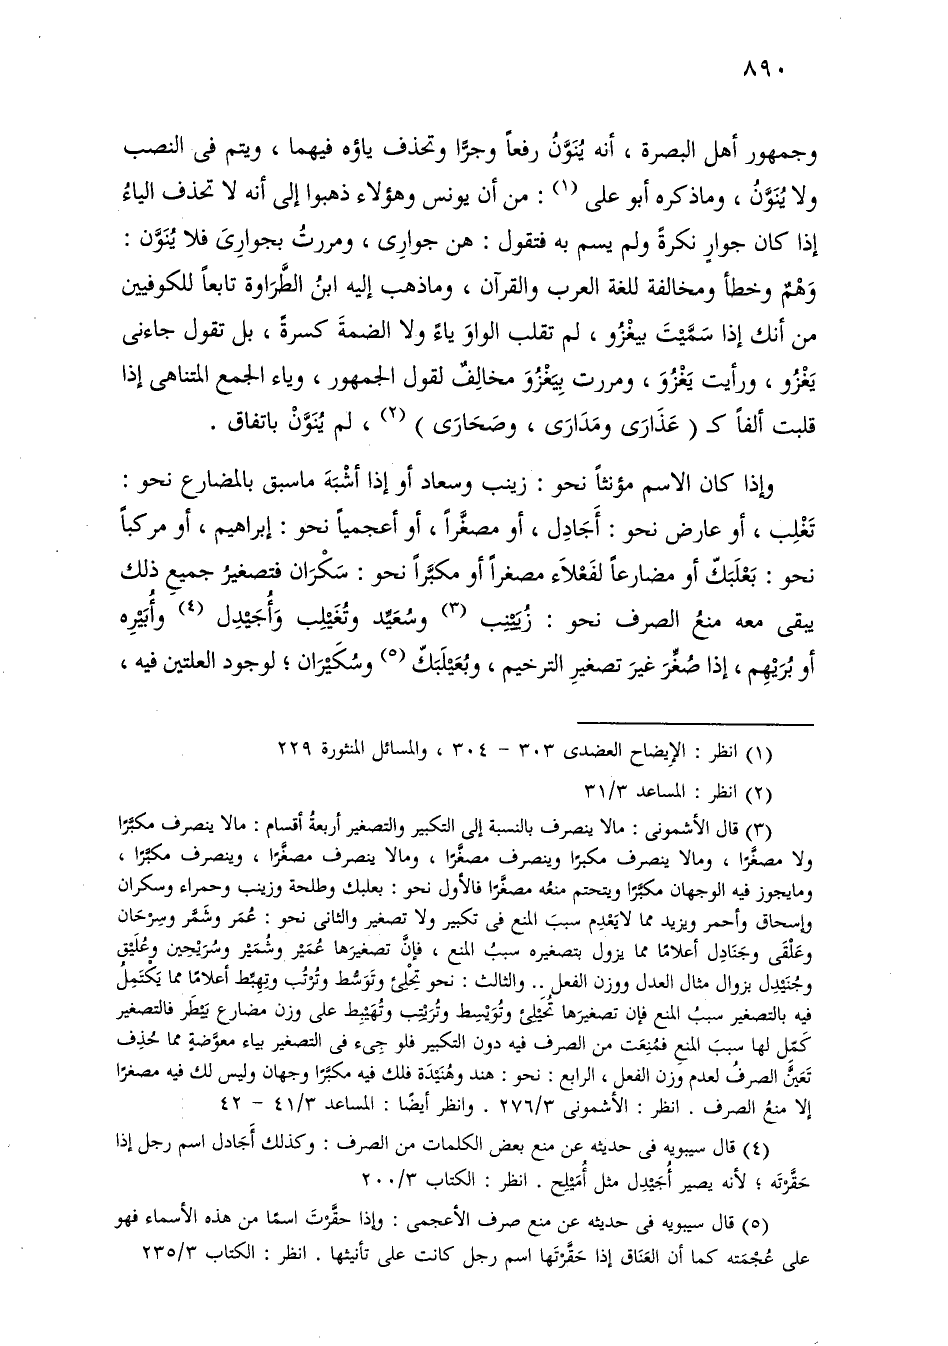 ٨٩٠
وجمهور أهل البصرة ، أنه يُنَوَّنُ رفعاً وجرًّا وتحذف ياؤه فيهما ، ويتم فى النصب
ولا يُنَوَّنُ ، وماذكره أبو على (١) : من أن يونس وهؤلاء ذهبوا إلى أنه لا تحذف الياءُ
إذا كان جوارٍ نكرةً ولم يسم به فتقول : هن جوارِى ، ومررتُ بجوارِىَ فلا يُنَوَّن :
وَهْمٌ وخطأ ومخالفة للغة العرب والقرآن ، وماذهب إليه ابنُ الطَّرَاوة تابعاً للكوفيين
من أنك إذا سَمَّيْتَ بيغْزُو ، لم تقلب الواوَ ياءً ولا الضمةَ كسرةً ، بل تقول جاءنى
يَغْزُو ، ورأيت يَغْزُوَ ، ومررت بِيَغْزُوَ مخالِفٌ لقول الجمهور ، وياء الجمع المتناهى إذا
قلبت ألفاً كـ ( عَذَارَى ومَدَارَى ، وصَحَارَى ) (٢) ، لم يُنَوَّنْ باتفاق .
وإذا كان الاسم مؤنثاً نحو : زينب وسعاد أو إذا أشْبَهَ ماسبق بالمضارع نحو :
تَغْلِب ، أو عارض نحو : أُجَادِل ، أو مصغَّراً ، أو أعجمياً نحو : إبراهيم ، أو مركباً
نحو : بَعْلَبَكّ أو مضارعاً لفَعْلاَء مصغراً أو مكبَّراً نحو : سَكْرَان فتصغيرُ جميعِ ذلك
يبقى معه منعُ الصرف نحو : زُيَيْنِب (٣) وسُعَيِّد وتُغَيْلِب وَأُجَيْدِل (٤) وأُبَيْرِه
أو بُرَيْهِم ، إذا صُغِّرَ غيرَ تصغيرِ الترخيم ، وبُعَيْلَبَكّ (٥) وسُكَيْرَان ؛ لوجود العلتين فيه ،
(١) انظر : الإيضاح العضدى ٣٠٣ – ٣٠٤ ، والمسائل المنثورة ٢٢٩
(٢) انظر : المساعد ٣١/٣
(٣) قال الأشمونى : مالا ينصرف بالنسبة إلى التكبير والتصغير أربعةُ أقسام : مالا ينصرف مكبَّرًا
ولا مصغَّرًا ، ومالا ينصرف مكبرًا وينصرف مصغَّرًا ، ومالا ينصرف مصغَّرًا ، وينصرف مكبَّرًا ،
ومايجوز فيه الوجهان مكبَّرًا ويتحتم منعُه مصغَّرًا فالأول نحو : بعلبك وطلحة وزينب وحمراء وسكران
وإسحاق وأحمر ويزيد مما لايَعْدِم سببَ المنع فى تكبير ولا تصغير والثانى نحو : عُمَر وشَمَّر وسِرْحَان
وعَلْقَى وجَنَادِل أعلامًا مما يزول بتصغيره سببُ المنع ، فإنَّ تصغيرَها عُمَيْر وشُمَيْر وسُرَيْحين وعُلَيْق
وجُنَيْدِل بزوال مثال العدل ووزن الفعل .. والثالث : نحو تِحْلِئ وتَوَسُّط وتُرْتُب وتِهِبِّط أعلامًا مما يَكْتَمِلُ
فيه بالتصغير سببُ المنع فإن تصغيرَها تُحَيْلِئ وتُوَيْسِط وتُرَيْتِب وتُهَيْبِط على وزن مضارع بَيْطَر فالتصغير
كَمّل لها سببَ المنع فمُنِعَت من الصرف فيه دون التكبير فلو جِىء فى التصغير بياء معوَّضةٍ مما حُذِف
تَعَيَّنَ الصرفُ لعدم وزن الفعل ، الرابع : نحو : هند وهُنَيْدَة فلك فيه مكبَّرًا وجهان وليس لك فيه مصغرًا
إلا منعُ الصرف . انظر : الأشمونى ٢٧٦/٣ . وانظر أيضًا : المساعد ٤١/٣ – ٤٢
(٤) قال سيبويه فى حديثه عن منع بعض الكلمات من الصرف : وكذلك أُجَادل اسم رجل إذا
حَقَّرْتَه ؛ لأنه يصير أُجَيْدِل مثل أُمَيْلِح . انظر : الكتاب ٢٠٠/٣
(٥) قال سيبويه فى حديثه عن منع صرف الأعجمى : وإذا حقَّرْتَ اسمًا من هذه الأسماء فهو
على عُجْمَته كما أن العَنَاق إذا حَقَّرْتَها اسم رجل كانت على تأنيثها . انظر : الكتاب ٢٣٥/٣